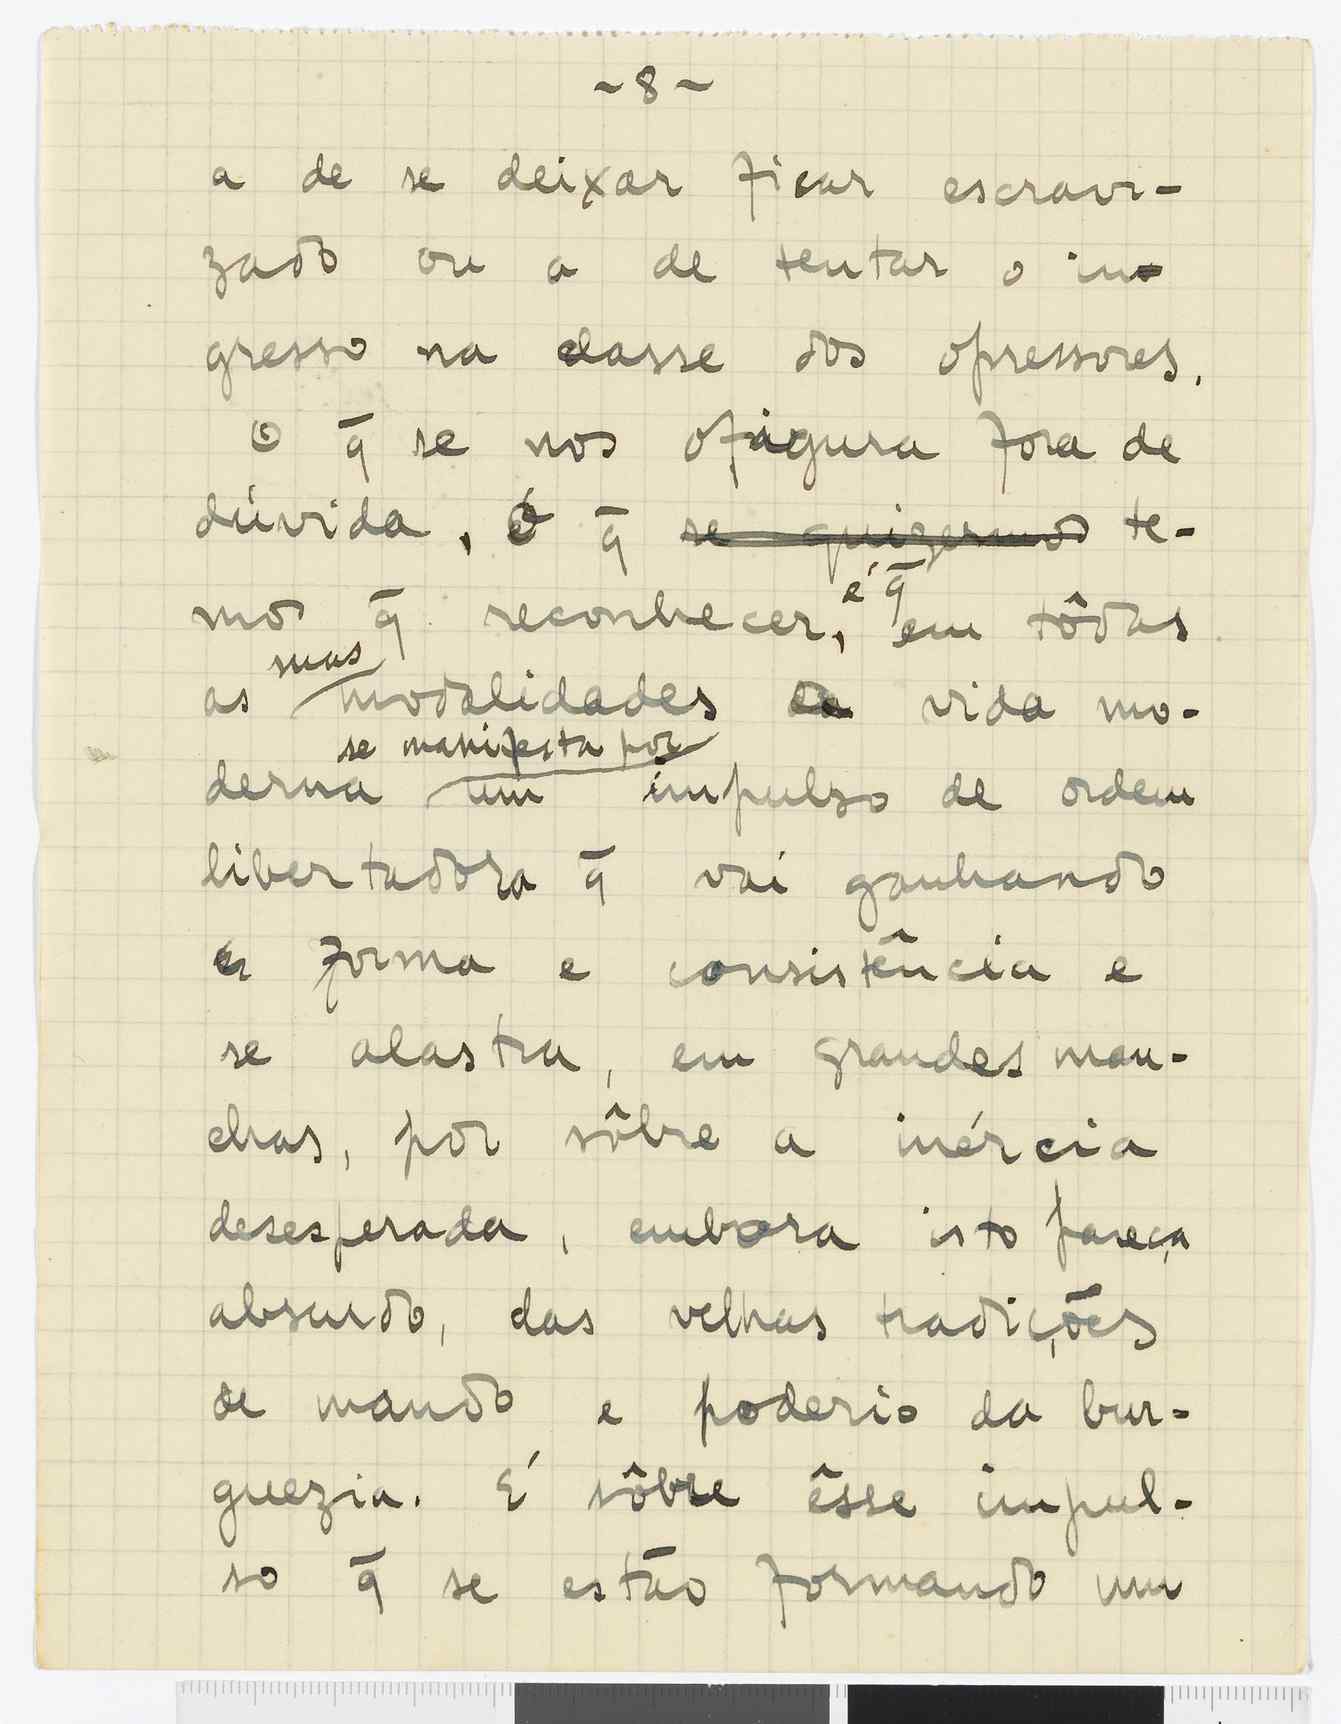 ~8~
a de se deixar ficar escravi-
zado ou a de tentar o in-
gresso na classe dos opressores.
O q̄ se nos afigura fora de
dúvida, é q̄ se quizermos te-
mos q̄ reconhecer, é q̄ em tôdas
as suas modalidades a vida mo-
derna se manifesta por um impulso de ordem
libertadora q̄ vai ganhando
forma e consistência e
se alastra, em grandes man-
chas, por sôbre a inércia
desesperada, embora isto pareça
absurdo, das velhas tradições
de mando e poderio da bur-
guezia. E' sôbre êsse impul-
so q̄ se estão formando um